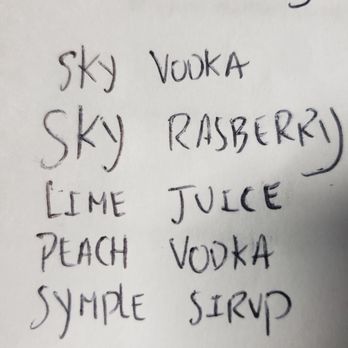 Sky VODKA
Sky RASBERRy
LIME JUICE
PEACH VODKA
SYMPLE SIRUP